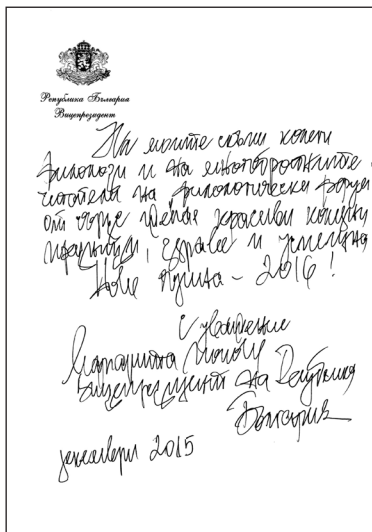 Република България
Вицепрезидент
На моите скъпи колеги
филолози и на многобройните
читатели на филологически форум
от сърце желая красиви коледни
празници, здраве и успешна
Нова година – 2016!
С уважение
Маргарита Попова
вицепрезидент на Република
България
декември 2015